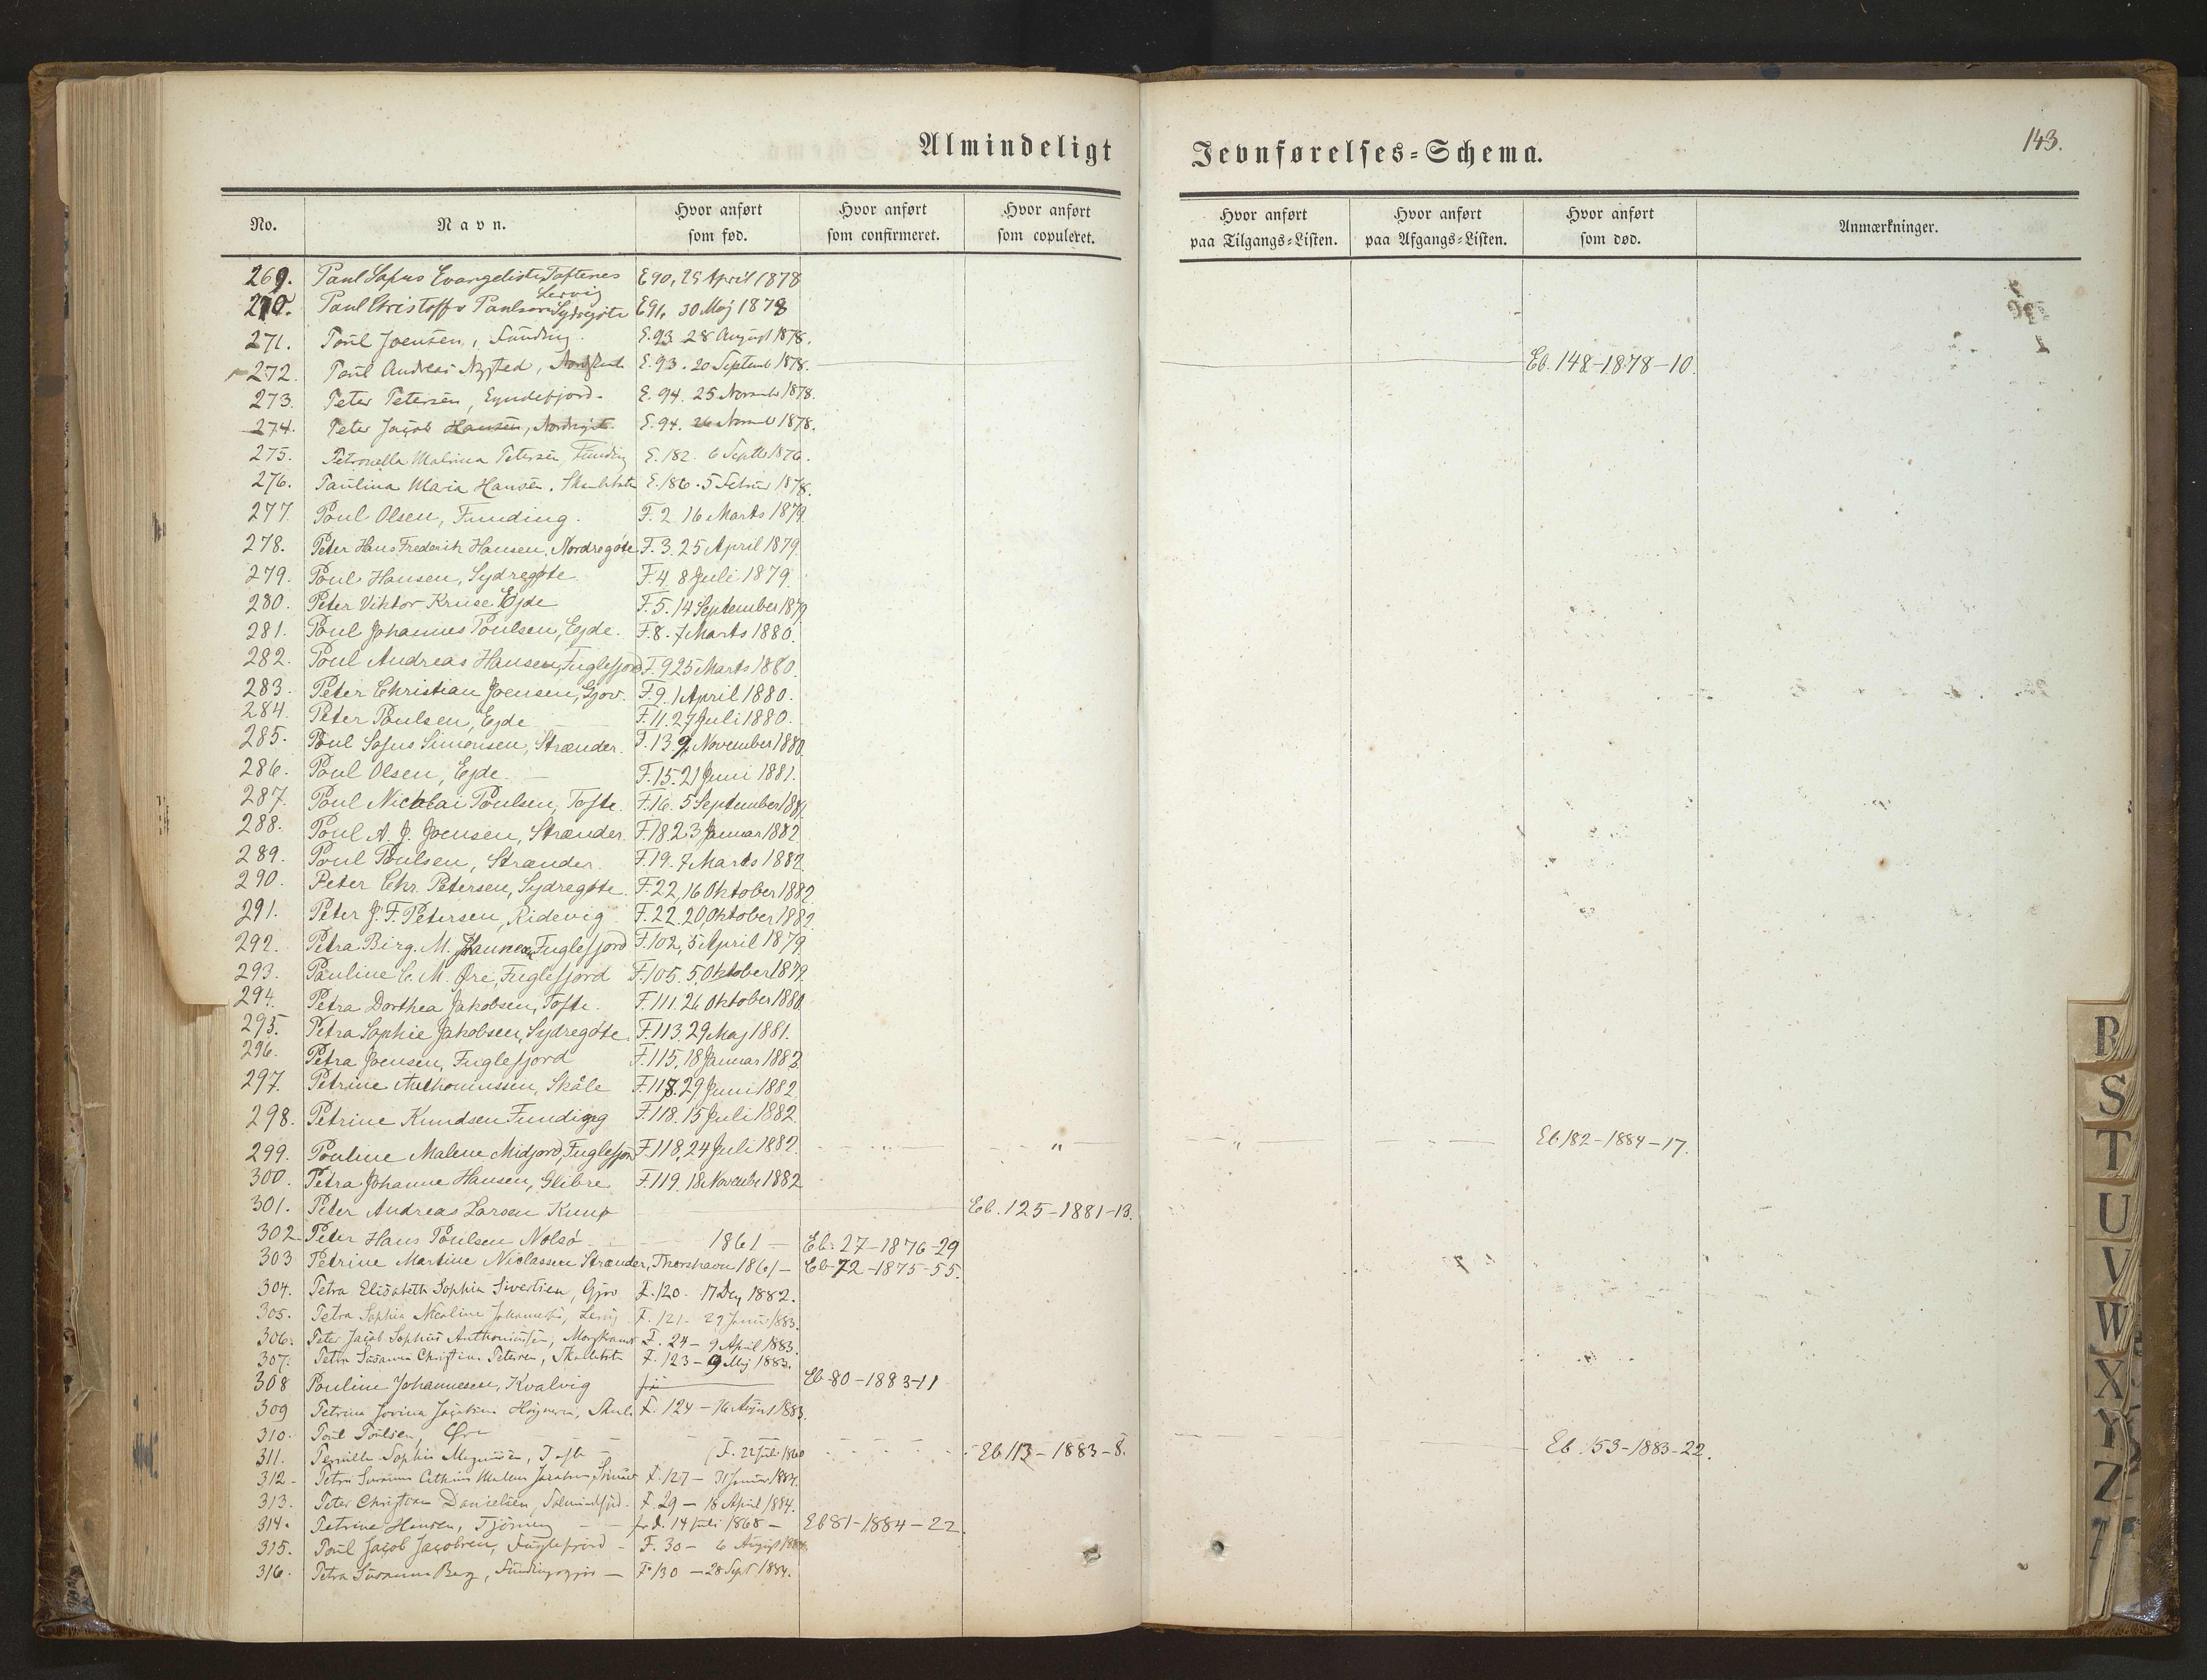 Almindeligt Jevnførelses-Schema.
143.
No. Navn. Hvor anført som fød. Hvor anført som confirmeret. Hvor anført som copuleret. Hvor anført paa Tilgangs-Listen. Hvor anført paa Afgangs-Listen. Hvor anført som død. Anmærkninger.
269. Paul Sofus Evangelists Toftenes E 90, 25 April 1878
Lervig
270. Paul Christoffer Paulsen Sydregöte E 91, 30 Maj 1878
271. Poul Joensen, Funding. E. 93 28 August 1878.
272. Poul Andreas Nysted, E. 93. 20 Septemb 1878. Eb. 148-1878-10.
273. Peter Petersen, Eyndefjord. E. 94. 25 Novemb 1878.
274. Peter Jacob Hansen, Nordregöte E. 94. 26 Novemb 1878.
275. Petronella Malvina Petersen, Funding E. 182. 6 Septb 1876.
276. Paulina Maria Hansen. E. 186. 5 Februar 1878.
277. Poul Olsen, Funding. F. 2 16 Marts 1879
278. Peter Hans Frederik Hansen, Nordregöte F. 3. 25 April 1879
279. Poul Hansen, Sydregøte. F. 4 8 Juli 1879.
280. Peter Viktor Kruse Ejde F. 5. 14 September 1879
281. Poul Johannes Poulsen, Ejde. F. 8. 7 Marts 1880.
282. Poul Andreas Hansen, Fuglefjord F. 9 25 Marts 1880.
283. Peter Christian Joensen, Gjov. F. 9. 1 April 1880.
284. Peter Poulsen, Ejde F. 11. 27 Juli 1880.
285. Poul Sofus Simonsen, Strænder. F. 13. 9 November 1880
286. Poul Olsen, Ejde. F. 15. 21 Juni 1881.
287. Poul Nicolai Poulsen, Tofte. F. 16. 5 September 1881.
288. Poul A. J. Joensen, Strænder. F. 18. 23 Januar 1882
289. Poul Poulsen, Strænder. F. 19. 7 Marts 1882
290. Peter Chr. Petersen, Sydregøte. F. 22, 16 Oktober 1882.
291. Peter J. F. Petersen, Ridevig F. 22. 20, Oktober 1882.
292. Petra Birg. M. Fuglefjord F. 102, 5 April 1879
293. Pauline C. M. Øre, Fuglefjord F. 105. 5. Oktober 1879.
294. Petra Dorthea Jakobsen, Tofte. F. 111. 26 Oktober 1880
295. Petra Sophie Jakobsen, Sydregöte. F. 113. 29 Maj 1881.
296. Petra Joensen, Fuglefjord F. 115, 18 Januar 1882.
297. Petrine Anthoniussen, Skåle F. 118. 29 Juni 1882
298. Petrine Knudsen Funding F. 118. 15 Juli 1882
299. Pouline Malene Midjord, Fuglefjord F. 118, 24 Juli 1882. " " Eb 182-1884-17.
300. Petra Johanne Hansen, Glibre F. 119. 18 Novembe 1882
301. Peter Andreas Larsen Eb. 125-1881-13.
302 Peter Hans Poulsen Nolsö 1861 - Eb. 27-1876-29
303 Petrine Martine Niclassen Strænder, Thorshavn 1861 - Eb 72-1875-55.
304. Petra Elisabeth Sophia Sivertsen, Gjov F. 120. 17 Dec 1882.
305. Petra Sophia Nicoline Johannesen, F. 121- 29 Januar 1883.
306. Peter Jacob Sophus Anthoniusen, F. 24 - 9 April 1883.
307. Petra Susanna Christina Petersen, F. 123 - 9 Maj 1883.
308 Pouline Johannesen, Kvalvig Eb 80-1883-11
309 Petrina F. 124 - 16 August 1883.
310. Poul Poulsen, Øre Eb. 153-1883-22.
311. Pernille Sophie Magnusen, Tofte (F. 22 Juli 1860 Eb 113-1883-8.
312 - Petra Susanna F. 127 - 31 Januar 1884.
313. Peter Christian Danielsen, F. 29 - 18 April 1884.
314. Petrine Hansen, f. d. 14 Juli 1868 - Eb 81-1884-22.
315. Poul Jacob Jacobsen, Fuglefjord - F. 30 - 6 August 1884
316. Petra Susanna Berg, - F. 130 - 28 Sept 1884.
R
S
T
U
V
W
X
Y
Z